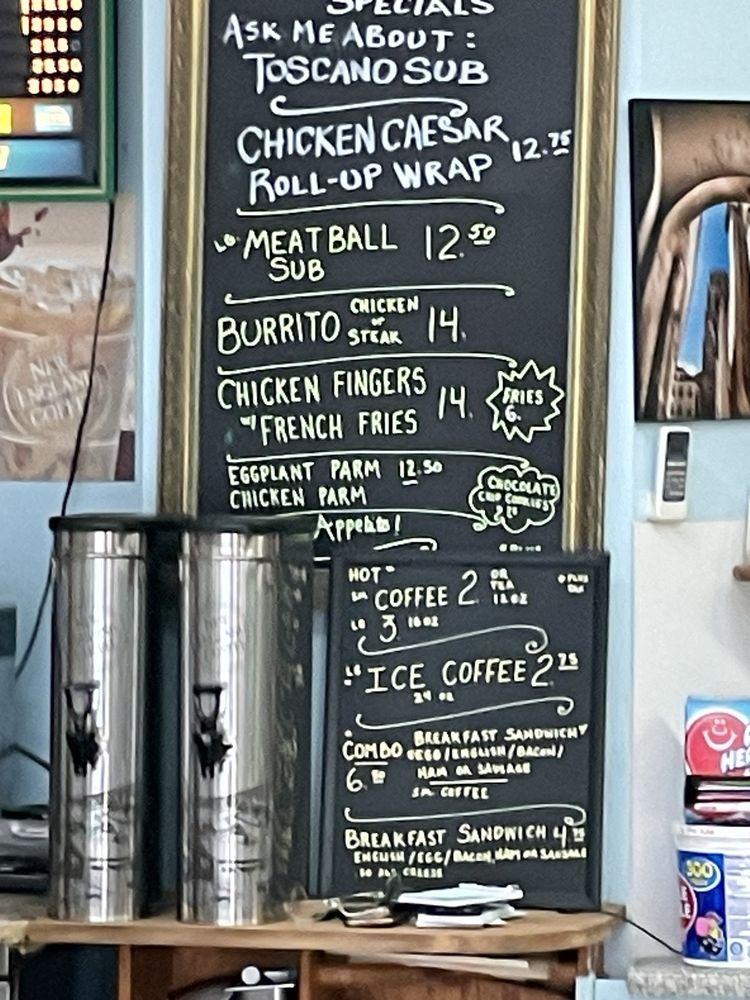 SPECIALS
ASK ME ABOUT:
TOSCANO SUB
CHICKEN CAESAR
ROLL-UP WRAP 12.75
LG MEATBALL 12.50
SUB
BURRITO CHICKEN or STEAK 14.
CHICKEN FINGERS
W/ FRENCH FRIES 14.
FRIES
6.
EGGPLANT PARM 12.50
CHICKEN PARM
CHOCOLATE
CHIP COOKIES
Appetito!
NEW
ENGLAND
COFFEE
HOT
SM COFFEE 2 OR TEA 12 OZ
+ PLUS TAX
LG 3 16 OZ
LG ICE COFFEE 2.75
24 OZ
COMBO BREAKFAST SANDWICH
EGG/ENGLISH/BACON/
6. HAM OR SAUSAGE
SM. COFFEE
BREAKFAST SANDWICH 4
ENGLISH/EGG/BACON, HAM OR SAUSAGE
CHEESE
300